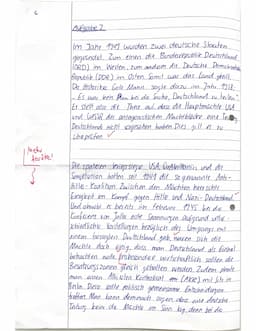 Aufgabe 2
Im Jahr 1949 wurden zwei deutsche Staaten
gegründet. Zum einen die Bundesrepublik Deutschland
(BRD) im Westen, zum anderen die Deutsche Demokrat.
Republik (DDR) im Osten. Somit war das Land geteilt.
Der Historiker Golo Mann sagte dazu im Jahr
"Es war kein Plan bei der Sache, Deutschland zu teilen."
Er stellt also die These auf, dass die Hauptmächte USA
und UdSSR des antagonistischen Machtblöcke eine
Deutschland nicht vorgesehen haben. Dies gilt es zu
überprüfen.
mehr
Breite!
Die späteren USA, Großbritannien und die
Sowjetunion hatten seit 1941 die sogenannte Anti-
Hitler-Koalition. Zwischen den Mächten herrschte
Einigkeit im Kampf gegen Hitler und Nazi-Deutschland.
Und obwohl es bereits im Februar 1945 bei der
Konferenz von Jalta erste Spannungen aufgrund unter-
schiedlicher Vorstellungen bezüglich des Umgangs mit
einem besiegten Deutschland gab, waren sich die
Mächte doch einig, dass man Deutschland als Einheit
betrachten wolle. wirtschaftlich sollten die
Besatzungszonen gleich behandelt werden. Zudem plante
man einen Alliierten Kontrollrat (AKR) mit Sitz in
Berlin. Diese sollte politisch gemeinsame Entscheidungen
treffen. Man kann demnach sagen, dass eine deutsche
Teilung kein der Mächte im Sinn lag, denn bei der